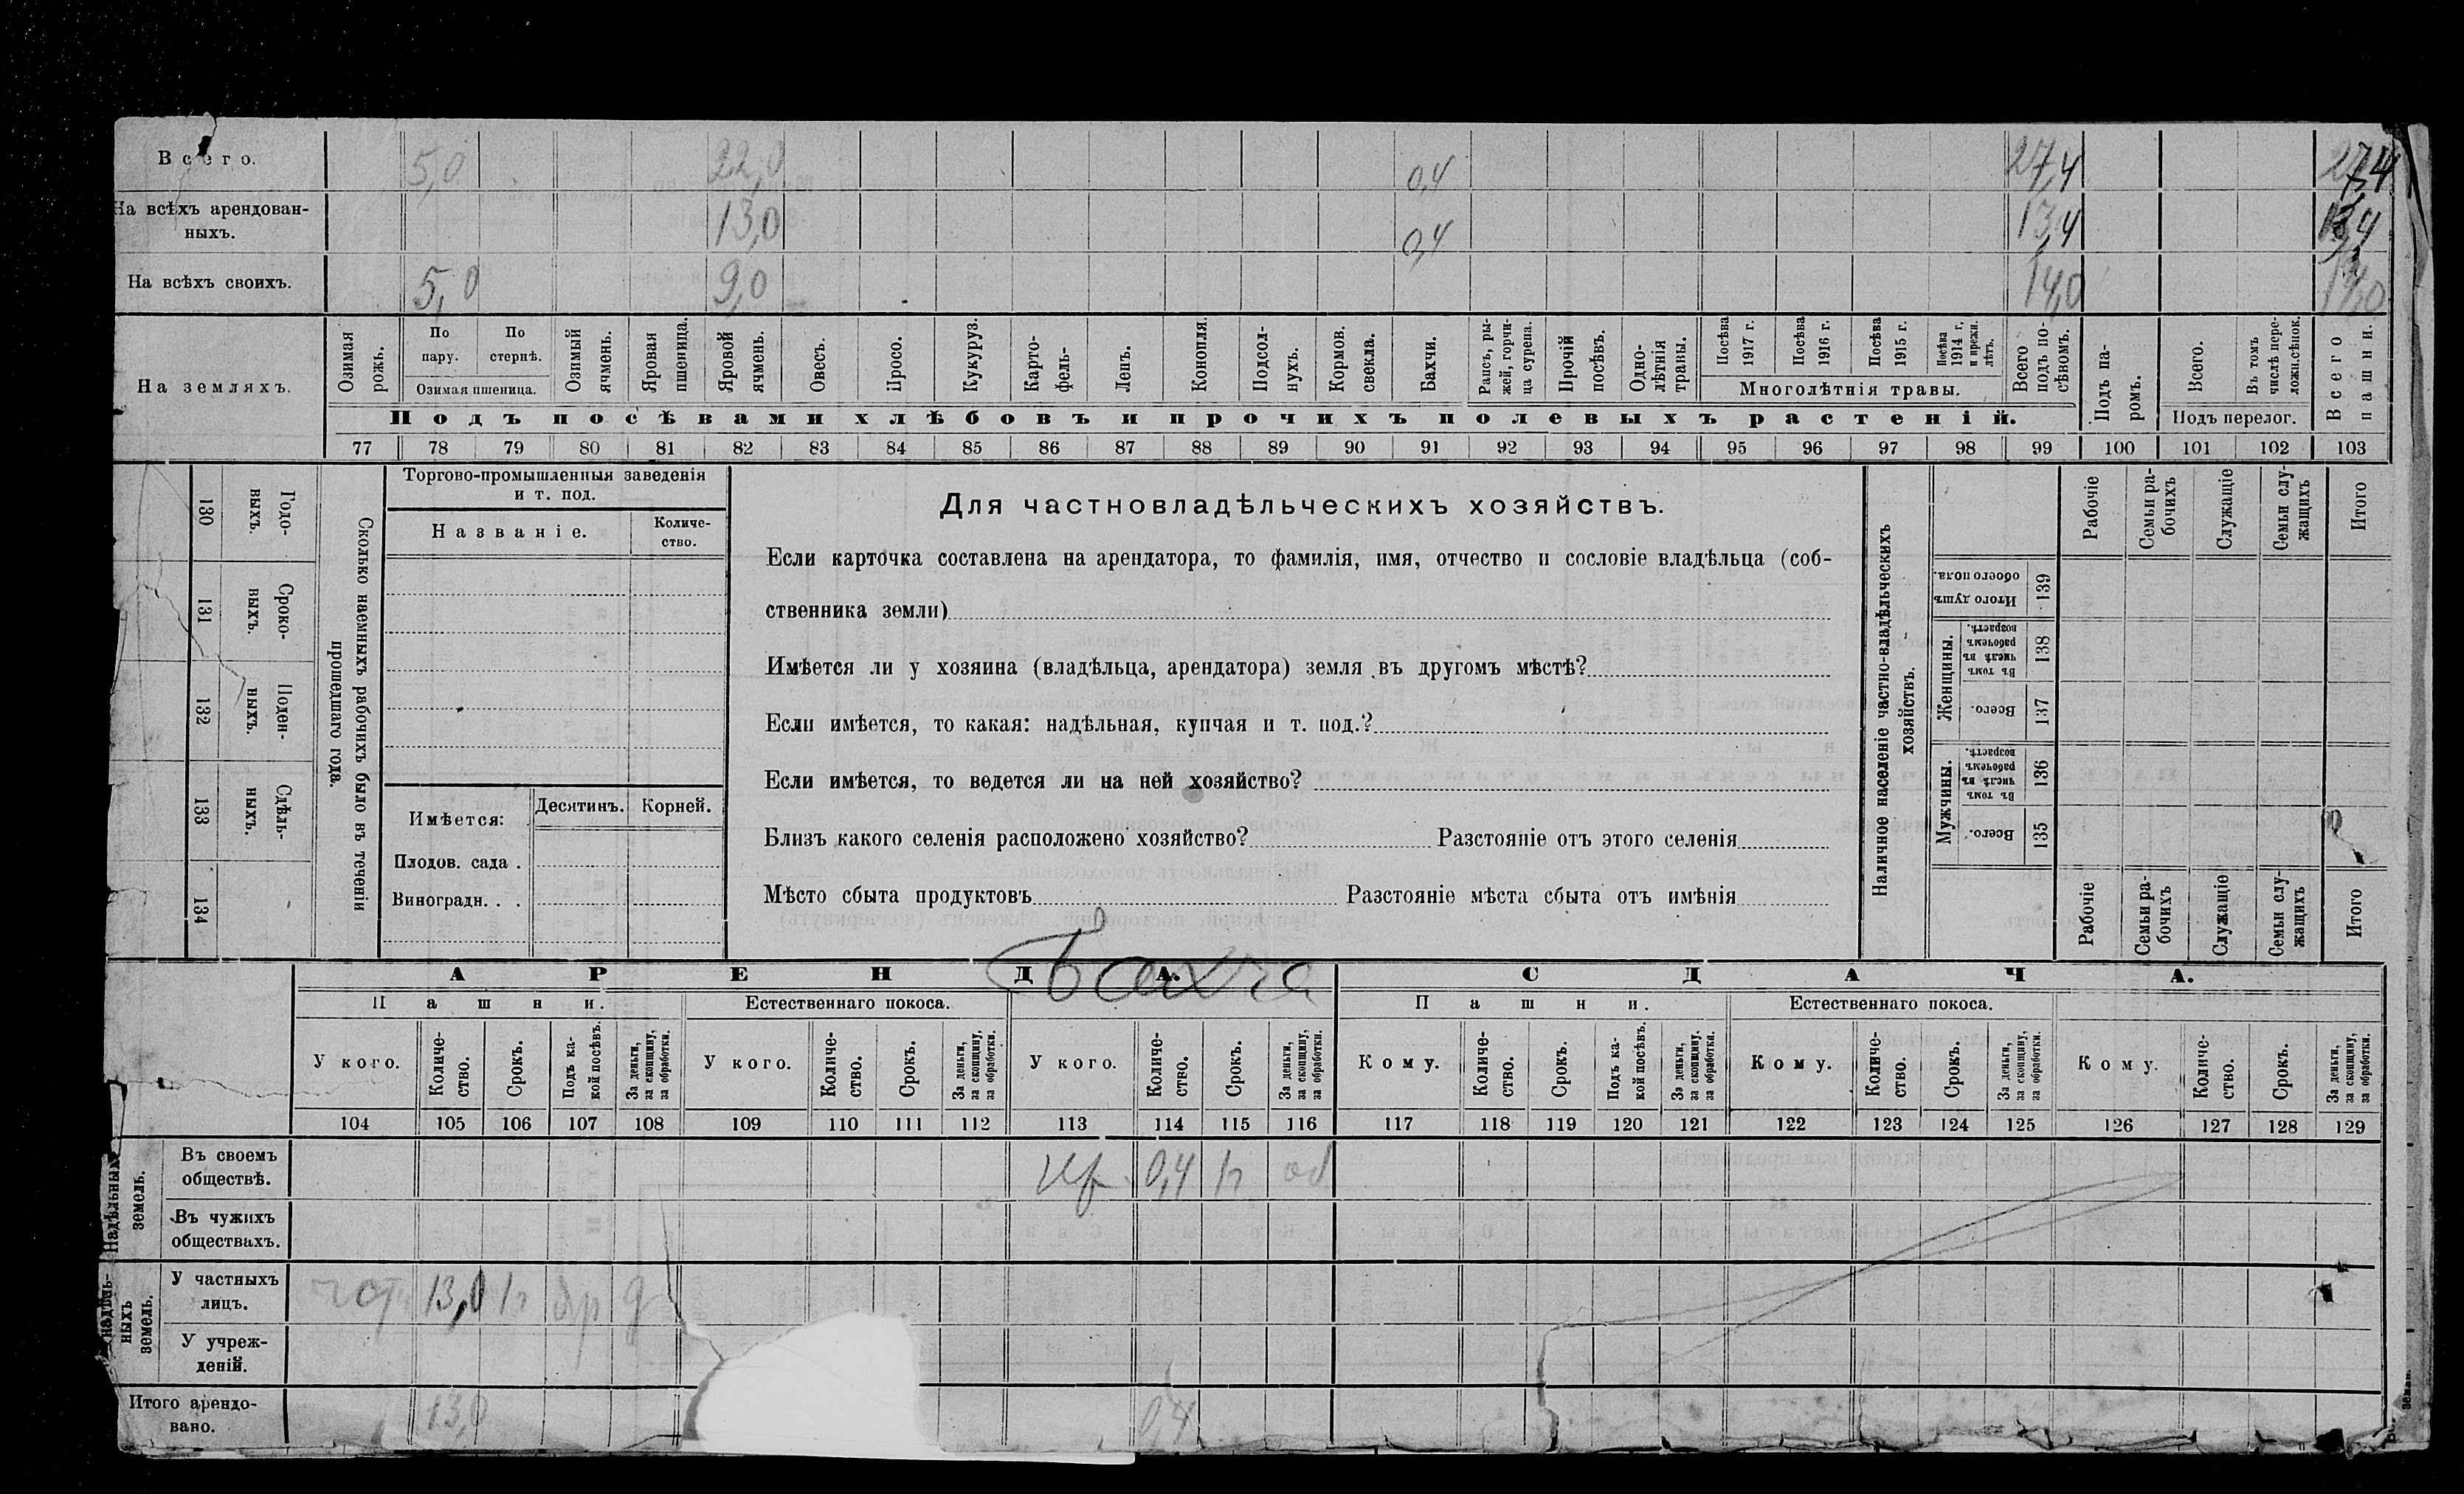 Всего. 5,0 22,0 0,4 27,4 27,4
На всѣхъ арендован-
ныхъ. 13,0 0,4 13,4 13,4
На всѣхъ своихъ. 5,0 9,0 14,0 14,0
На земляхъ.
Озимая рожь.
По пару.
По стернѣ.
Озимая пшеница.
Озимый ячмень.
Яровая пшеница.
Яровой ячмень.
Овесъ.
Просо.
Кукуруз.
Карто-
фель-
Ленъ.
Конопля.
Подсол-
нухъ.
Кормов.
свекла.
Бахчи.
Рапсъ, ры-
жей, горчи-
ца сурепа.
Прочій
посѣвъ.
Одно-
лѣтнія
травы.
Посѣва
1917 г.
Посѣва
1916 г.
Посѣва
1915 г.
Посѣва
1914 г,
и прежн.
лѣтъ.
Многолѣтнія травы.
Всего
подъ по-
сѣвомъ.
Подъ па-
ромъ.
Всего.
Въ томъ
числѣ пере-
ложн.сѣнок.
Подъ перелог.
Всего
пашни.
Подъ посѣвами хлѣбовъ и прочихъ полевыхъ растеній.
77 78 79 80 81 82 83 84 85 86 87 88 89 90 91 92 93 94 95 96 97 98 99 100 101 102 103
Сколько наемныхъ рабочихъ было въ теченіи
прошедшаго года.
Годо-
выхъ.
130
Сроко-
выхъ.
131
Поден-
ныхъ.
132
Сдѣль-
ныхъ.
133
134
Торгово-промышленныя заведенія
и т. под.
Названіе.
Количе-
ство.
Имѣется:
Десятинъ.
Корней.
Плодов. сада .
Виноградн. . .
Для частновладѣльческихъ хозяйствъ.
Если карточка составлена на арендатора, то фамилія, имя, отчество и сословіе владѣльца (соб-
ственника земли)
Имѣется ли у хозяина (владѣльца, арендатора) земля въ другомъ мѣстѣ?
Если имѣется, то какая: надѣльная, купчая и т. под.?
Если имѣется, то ведется ли на ней хозяйство?
Близъ какого селенія расположено хозяйство? Разстояніе отъ этого селенія
Мѣсто сбыта продуктовъ Разстояніе мѣста сбыта отъ имѣнія
Наличное населеніе частно-владѣльческихъ
хозяйствъ.
Рабочіе
Семьи ра-
бочихъ
Служащіе
Семьи слу-
жащихъ
Итого
Итого душъ
обоего пола.
139
Женщины.
Въ томъ
числѣ въ
рабочемъ
возрастѣ.
138
Всего.
137
Мужчины.
Въ томъ
числѣ въ
рабочемъ
возрастѣ.
136
Всего.
135
Рабочіе
Семьи ра-
бочихъ
Служащіе
Семьи слу-
жащихъ
Итого
АРЕНДА. СДАЧА.
Пашни. Естественнаго покоса. Бахча Пашни. Естественнаго покоса.
У кого.
Количе-
ство.
Срокъ.
Подъ ка-
кой посѣвъ.
За деньги,
за скопщину,
за обработки.
У кого.
Количе-
ство.
Срокъ.
За деньги,
за скопщину,
за обработки.
У кого.
Количе-
ство.
Срокъ.
За деньги,
за скопщину,
за обработки.
Кому.
Количе-
ство.
Срокъ.
Подъ ка-
кой посѣвъ.
За деньги,
за скопщину,
за обработки.
Кому.
Количе-
ство.
Срокъ.
За деньги,
за скопщину,
за обработки.
Кому.
Количе-
ство.
Срокъ.
За деньги,
за скопщину,
за обработки.
104 105 106 107 108 109 110 111 112 113 114 115 116 117 118 119 120 121 122 123 124 125 126 127 128 129
Надѣльныхъ
земель.
Въ своемъ
обществѣ. 0,4
Въ чужихъ
обществахъ.
надѣль-
ныхъ
земель.
У частныхъ
лицъ. 13,0
У учреж-
деній.
Итого арендо-
вано. 13,0 0,4